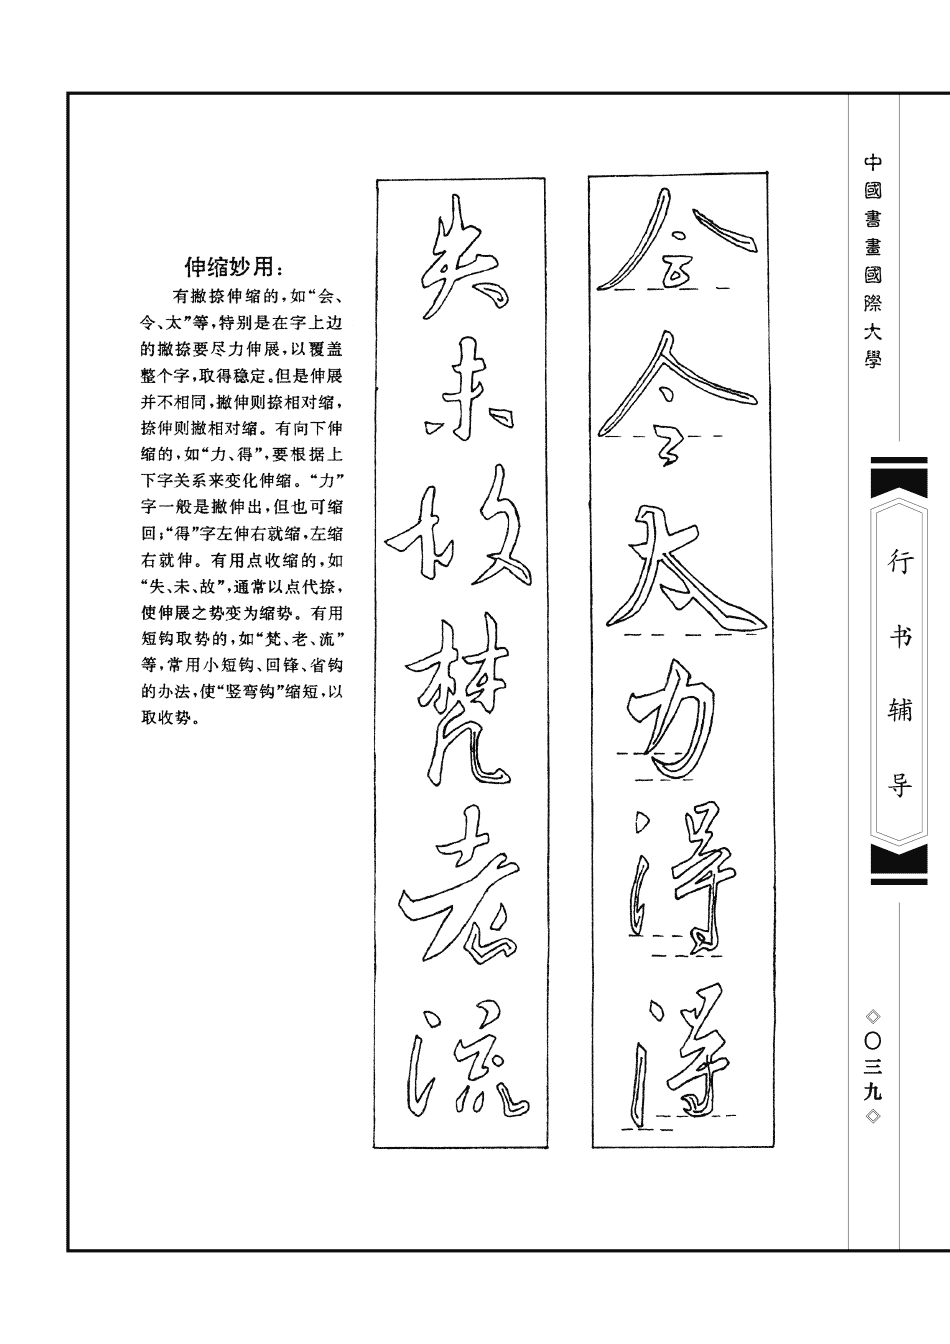 伸缩妙用：
有撇捺伸缩的，如“会、
令、太”等，特别是在字上边
的撇捺要尽力伸展，以覆盖
整个字，取得稳定。但是伸展
并不相同，撇伸则捺相对缩，
捺伸则撇相对缩。有向下伸
缩的，如“力、得”，要根据上
下字关系来变化伸缩。“力”
字一般是撇伸出，但也可缩
回；“得”字左伸右就缩，左缩
右就伸。有用点收缩的，如
“失、未、故”，通常以点代捺，
使伸展之势变为缩势。有用
短钩取势的，如“梵、老、流”
等，常用小短钩、回锋、省钩
的办法，使“竖弯钩”缩短，以
取收势。
会令太力得得
失未故梵老流
中國書畫國際大學
行书辅导
〇三九